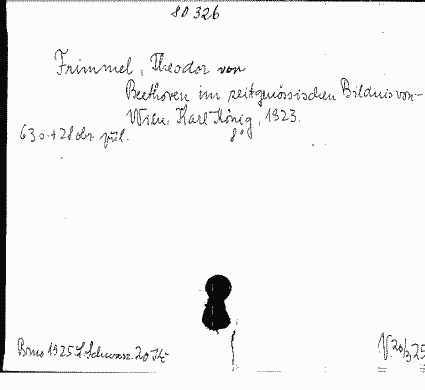 80 326
Frimmel, Theodor von
Beethoven im zeitgenössischen Bildnis von-
Wien. Karl König, 1923.
63 s. + 28 obr. příl. 8°
Brno 1925 Schwarz. 20 Kč
V 20/3 25